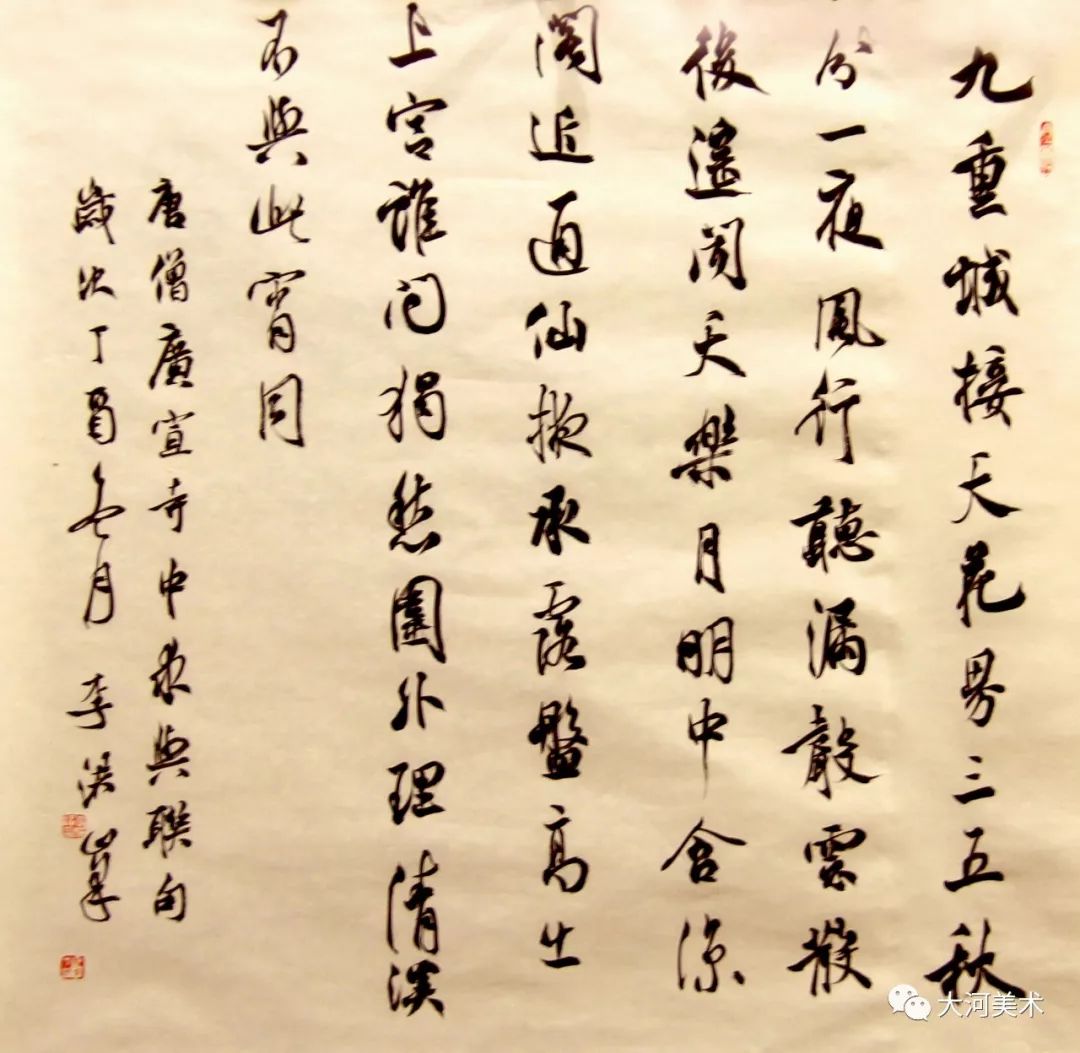 九重城接天花界三五秋
分一夜風行聽漏聲雲散
後遙聞天樂月明中含涼
閣近通仙掖承露盤高出
上宮誰問獨愁外理清
不與此宵同
唐僧廣宣寺中求與聯句
歲次丁酉冬月 李洪峯
大河美术